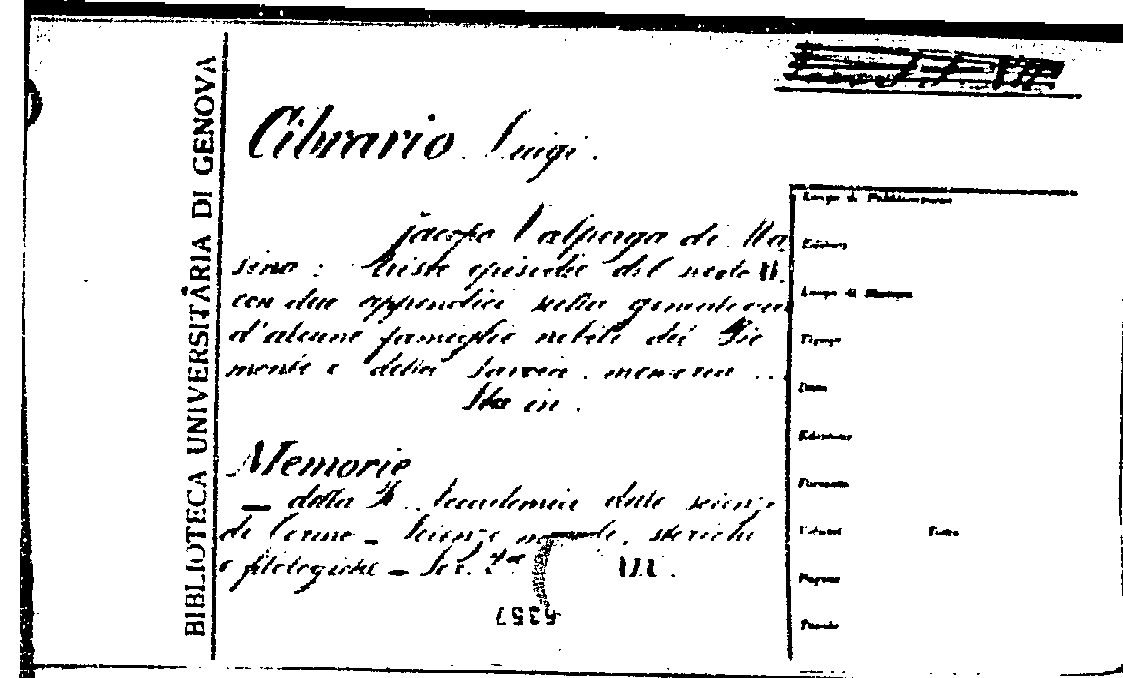 BIBLIOTECA UNIVERSITARIA DI GENOVA
Cibrario Luigi.
Jacopo Valperga di Ma
sino: triste episodio del secolo
con due appendici sulla genealogia
d'alcune famiglie nobili del Pie
monte e della Savoia. memoria ...
Sta in.
Memorie
— della R. Accademia delle scienze
di Torino — Scienze morali, storiche
e filologiche — Ser. 2ª
Luogo di Pubblicazione
Editore
Luogo di Stampa
Tipogr.
Data
Edizione
Formato
Volumi
Pagine
5357